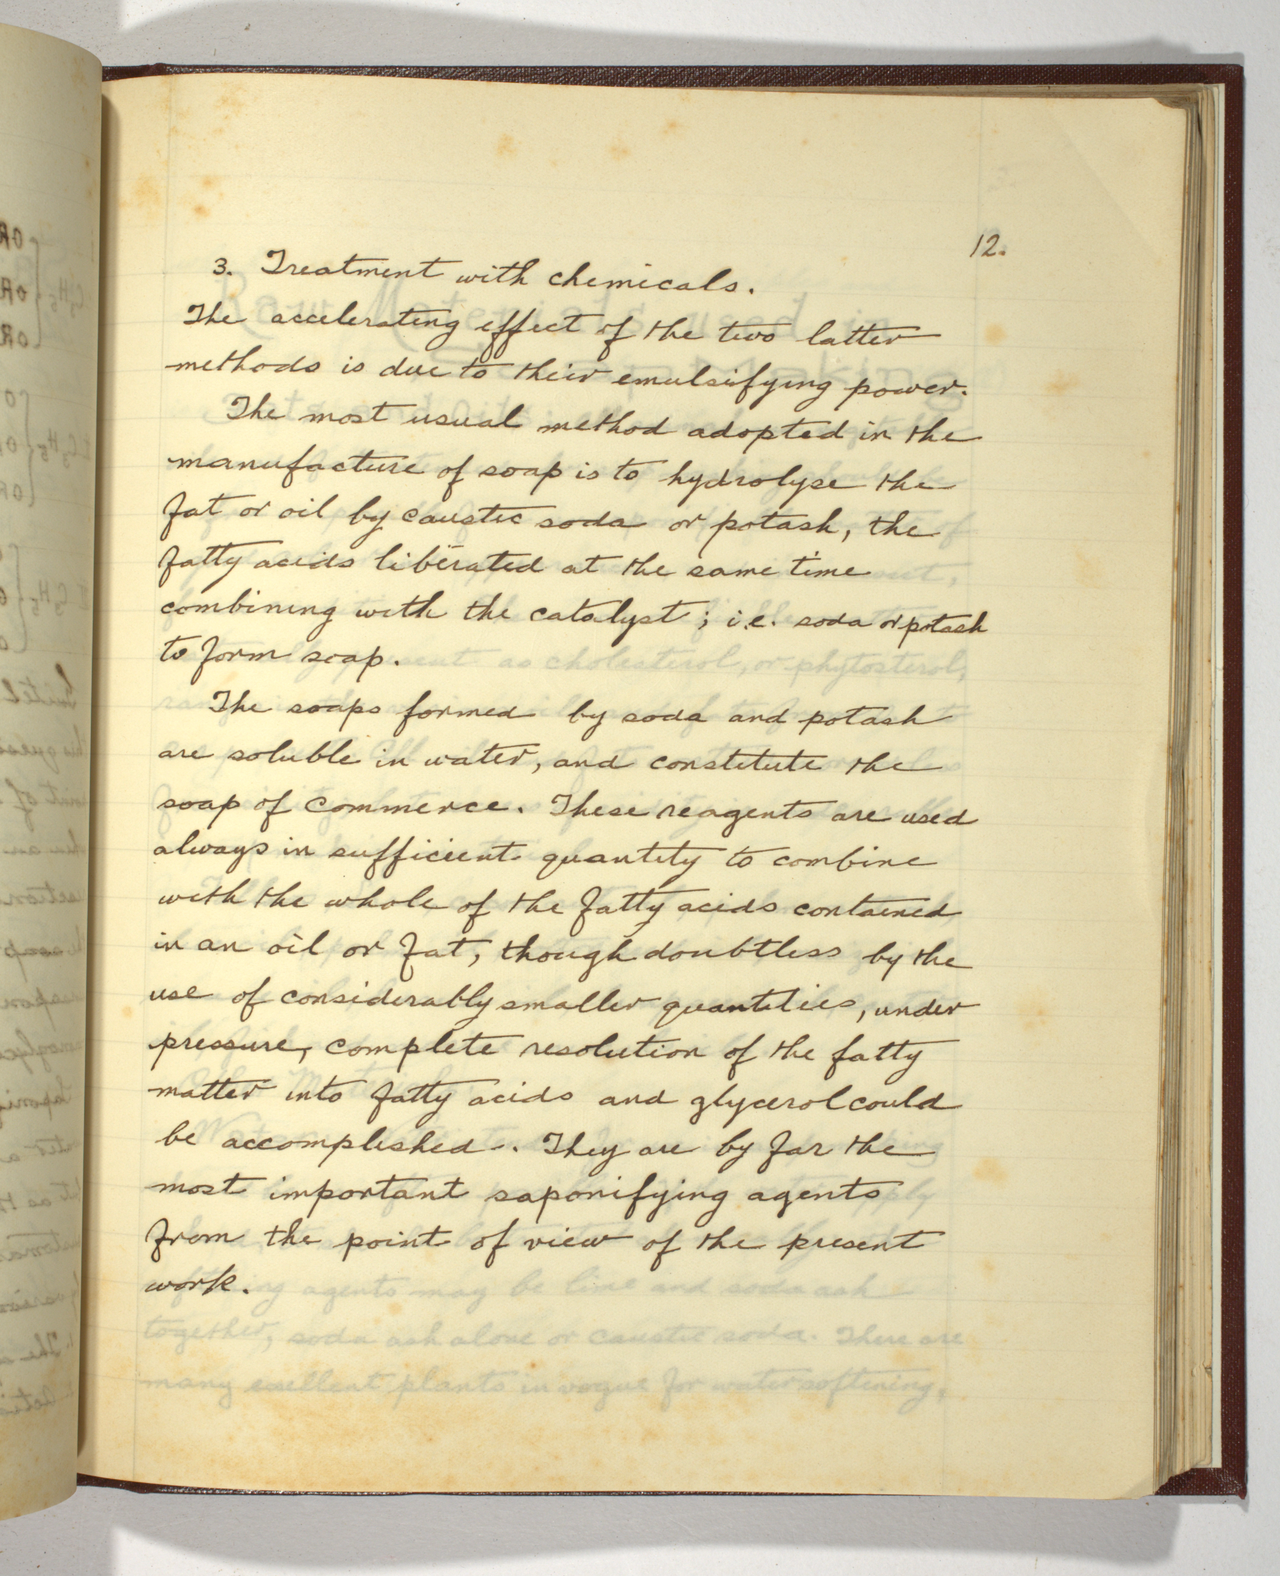 12.
3. Treatment with chemicals.
The accelerating effect of the two latter
methods is due to their emulsifying power.
The most usual method adopted in the
manufacture of soap is to hydrolyse the
fat or oil by caustic soda or potash, the
fatty acids liberated at the same time
combining with the catalyst; i.e. soda or potash
to form soap.
The soaps formed by soda and potash
are soluble in water, and constitute the
soap of commerce. These reagents are used
always in sufficient quantity to combine
with the whole of the fatty acids contained
in an oil or fat, though doubtless by the
use of considerably smaller quantities, under
pressure, complete resolution of the fatty
matter into fatty acids and glycerol could
be accomplished. They are by far the
most important saponifying agents
from the point of view of the present
work.
agents may be lime and soda ash
together, soda ash alone or caustic soda. There are
many excellent plants in vogue for water softening,